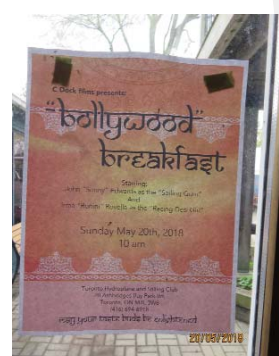 C Dock films presents:
"bollywood"
breakfast
Starring:
John "Sunny" as the "Sailing Guru"
And
"Hunny" as the "Racing
Sunday May 20th, 2018
10 am
Toronto Hydroplane and Sailing Club
20 Ashbridges Bay Park Rd.
Toronto, ON
(416) 694
may your taste buds be enlightened
20/05/2018